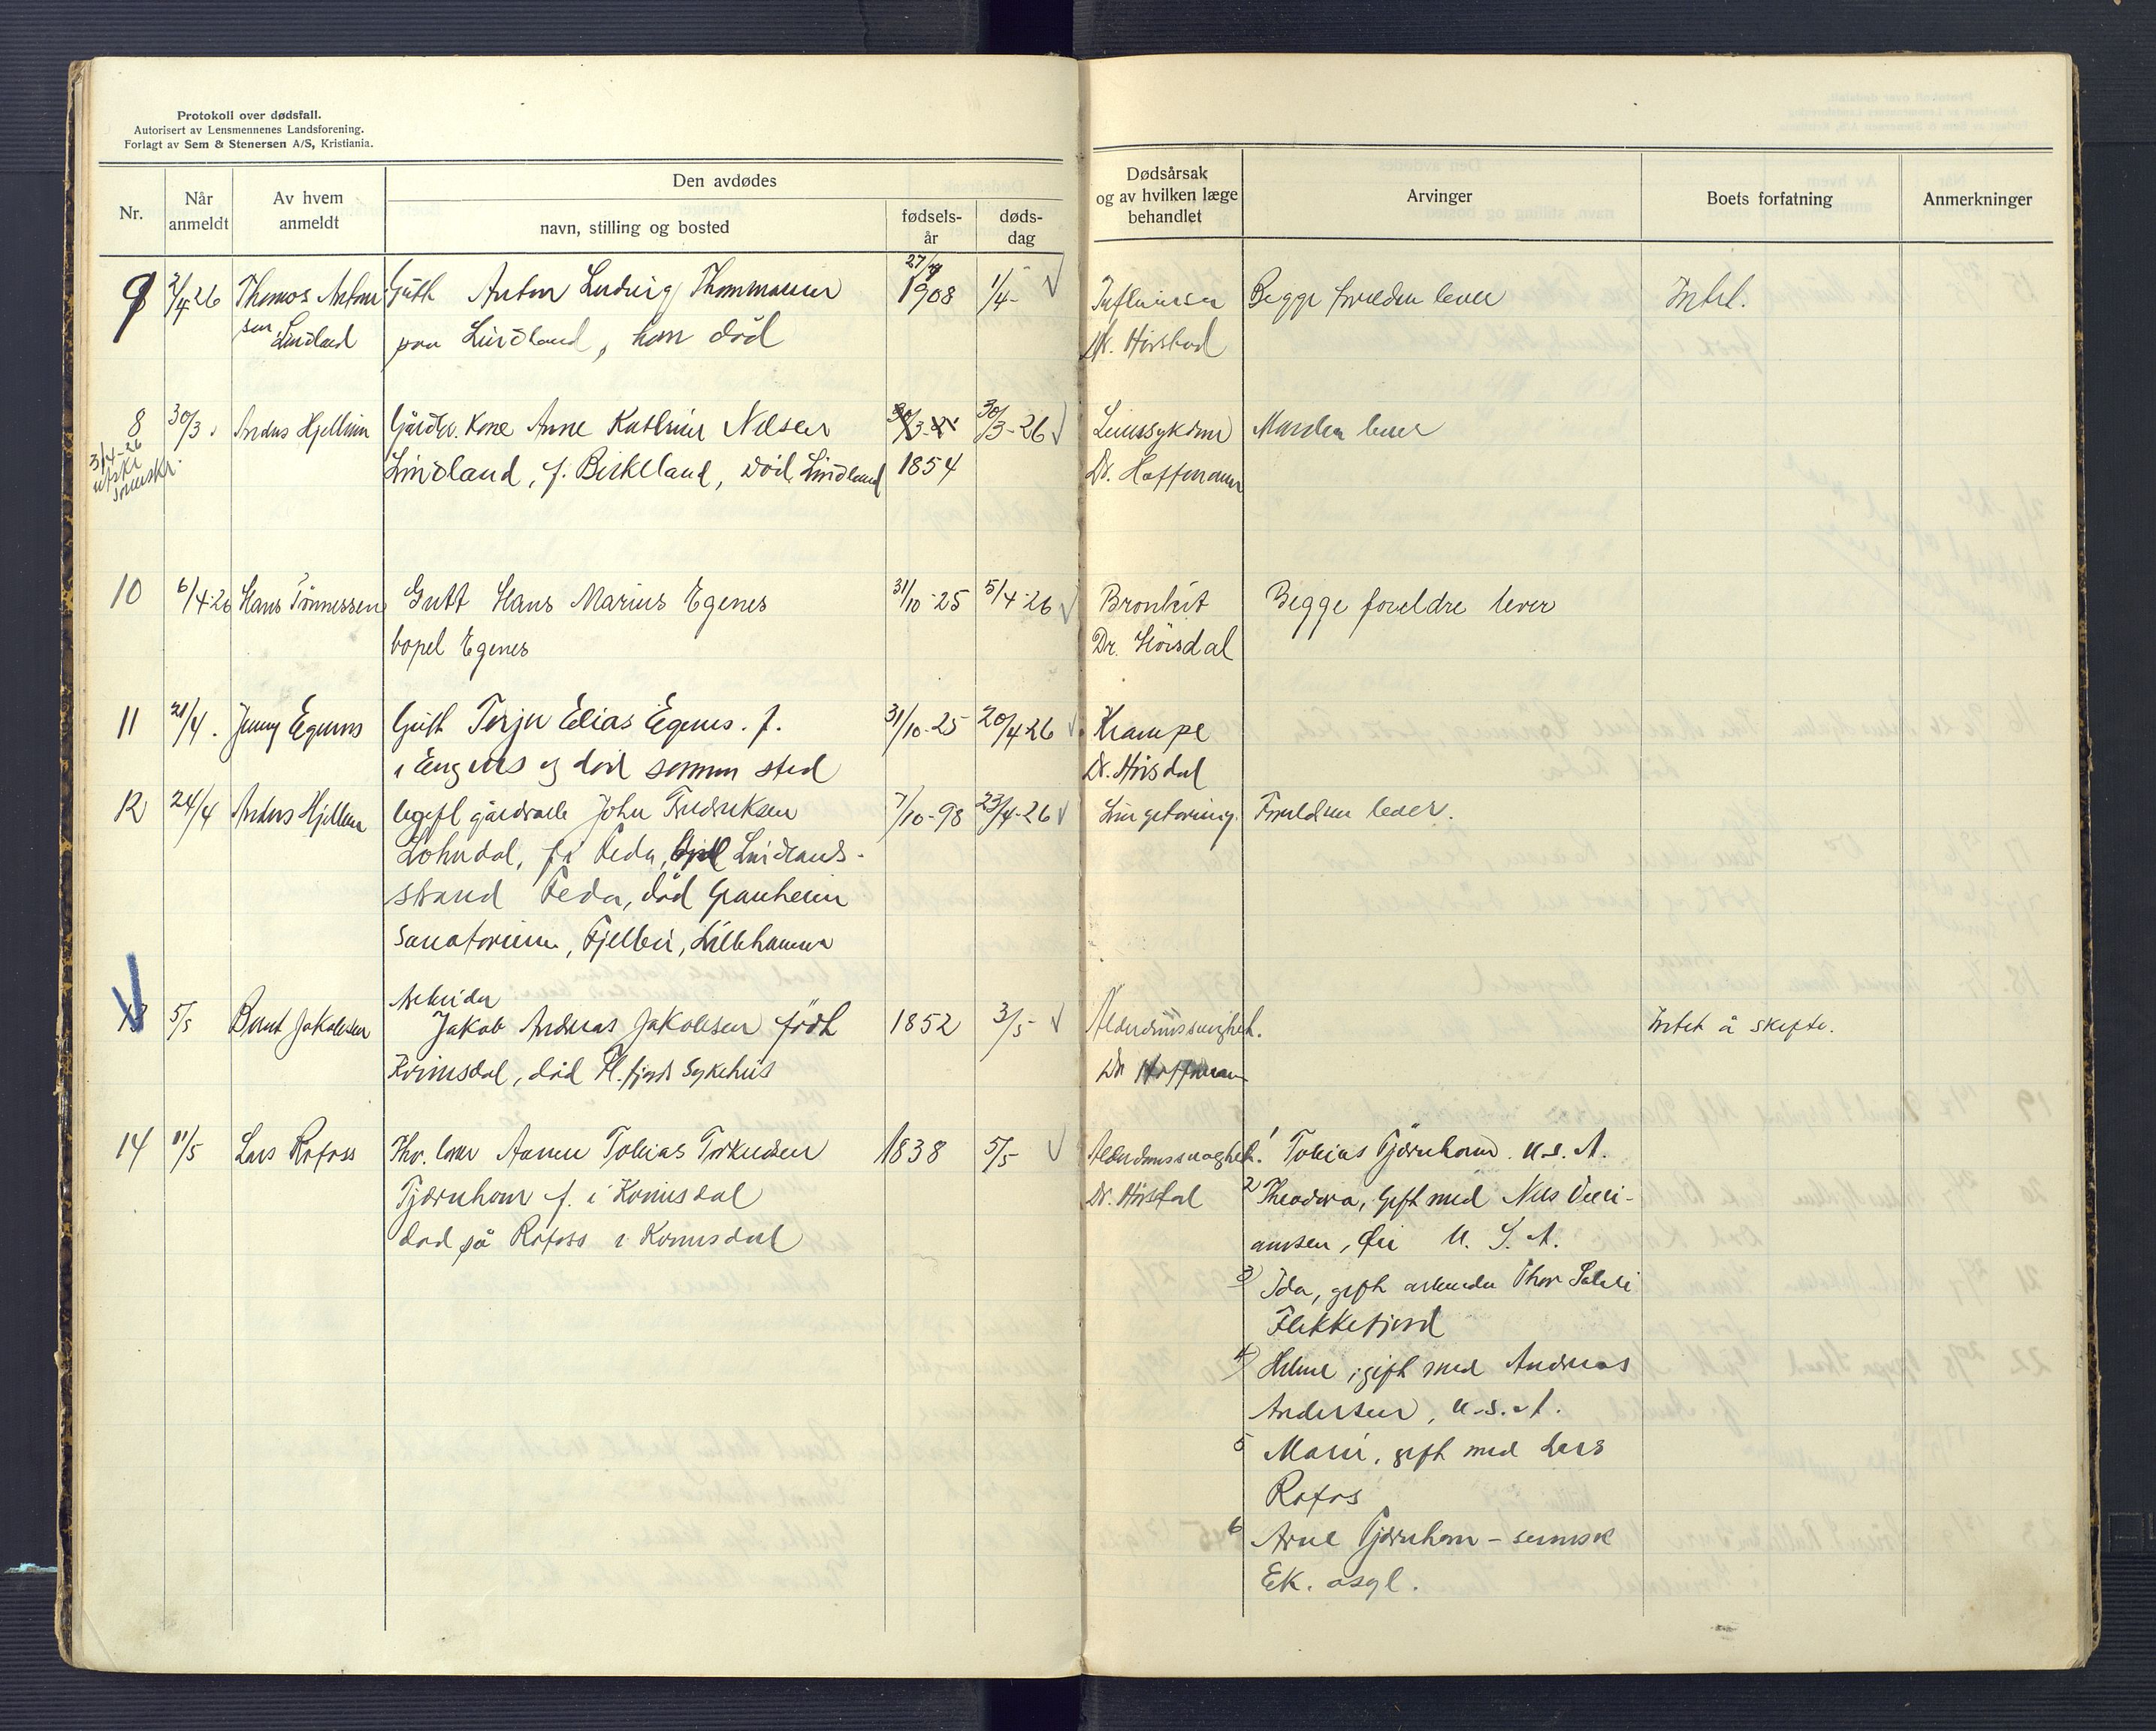 Protokoll over dødsfall.
Autorisert av Lensmennenes Landsforening.
Forlagt av Sem & Stenersen A/S, Kristiania.
Nr.
Når anmeldt
Av hvem anmeldt
Den avdødes
navn, stilling og bosted
fødsels-år
døds-dag
Dødsårsak og av hvilken læge behandlet
Arvinger
Boets forfatning
Anmerkninger
9 2/4 26 Thomas Anton Gutt Anton Ludvig Thommassen 1908 1/4 Influensa Begge forældre lever Intet.
sen Lindland paa Lindland, død
8 30/3. Andus Hjellum Gårdbr. Kone Anne Kathrine Nilsen 30/3-26 Lungssykdom Manden lever
3/4-26 Lindland, f. Birkeland, død Lindland 1854 Dr. Hoffmann
10 6/4-26 Hans Tönnessen Gutt Hans Marius Egenes 31/10-25 5/4-26 Bronkit Begge foreldre lever
bopel Egenes Dr. Hörsdal
11 21/4. Jenny Egenes Gutt Terje Elias Egenes. f. 31/10-25 20/4-26 Krampe
i Engenes og död samme sted Dr. Hörsdal
12 24/4 Anders Hjellum Ugift John Fredriksen 7/10-98 23/4-26 Foreldrene lever.
Lohndal, fr Feda, Lindlands-
strand Feda, död Granheim
Sanatorium, Lillehammer
Arbeider
13 5/5 Bernt Jakobsen Jakob Andreas Jakobsen född 1852 3/5 Alderdomssvaghet. Intet å skifte.
Kvinesdal, död Fl.fjords Sykehus Dr Hoffmann
14 11/5 Lars Rafoss Fhv. Tobias Torkildsen 1838 5/5 Alderdomssvaghet. 1 Tobias Tjörnhom. U.S.A.
Tjørnhom f. i Kvinesdal Dr. Hörsdal 2 Theodora, gift med Nils
død på Rafoss i Kvinesdal U.S.A.
3) Ida, gift arbeider Thor
Flekkefjord
4) Helene, gift med Andreas
Andersen, U.S.A.
5 Marie, gift med Lars
Rafos
6 Arne Tjørnhom
Ek.